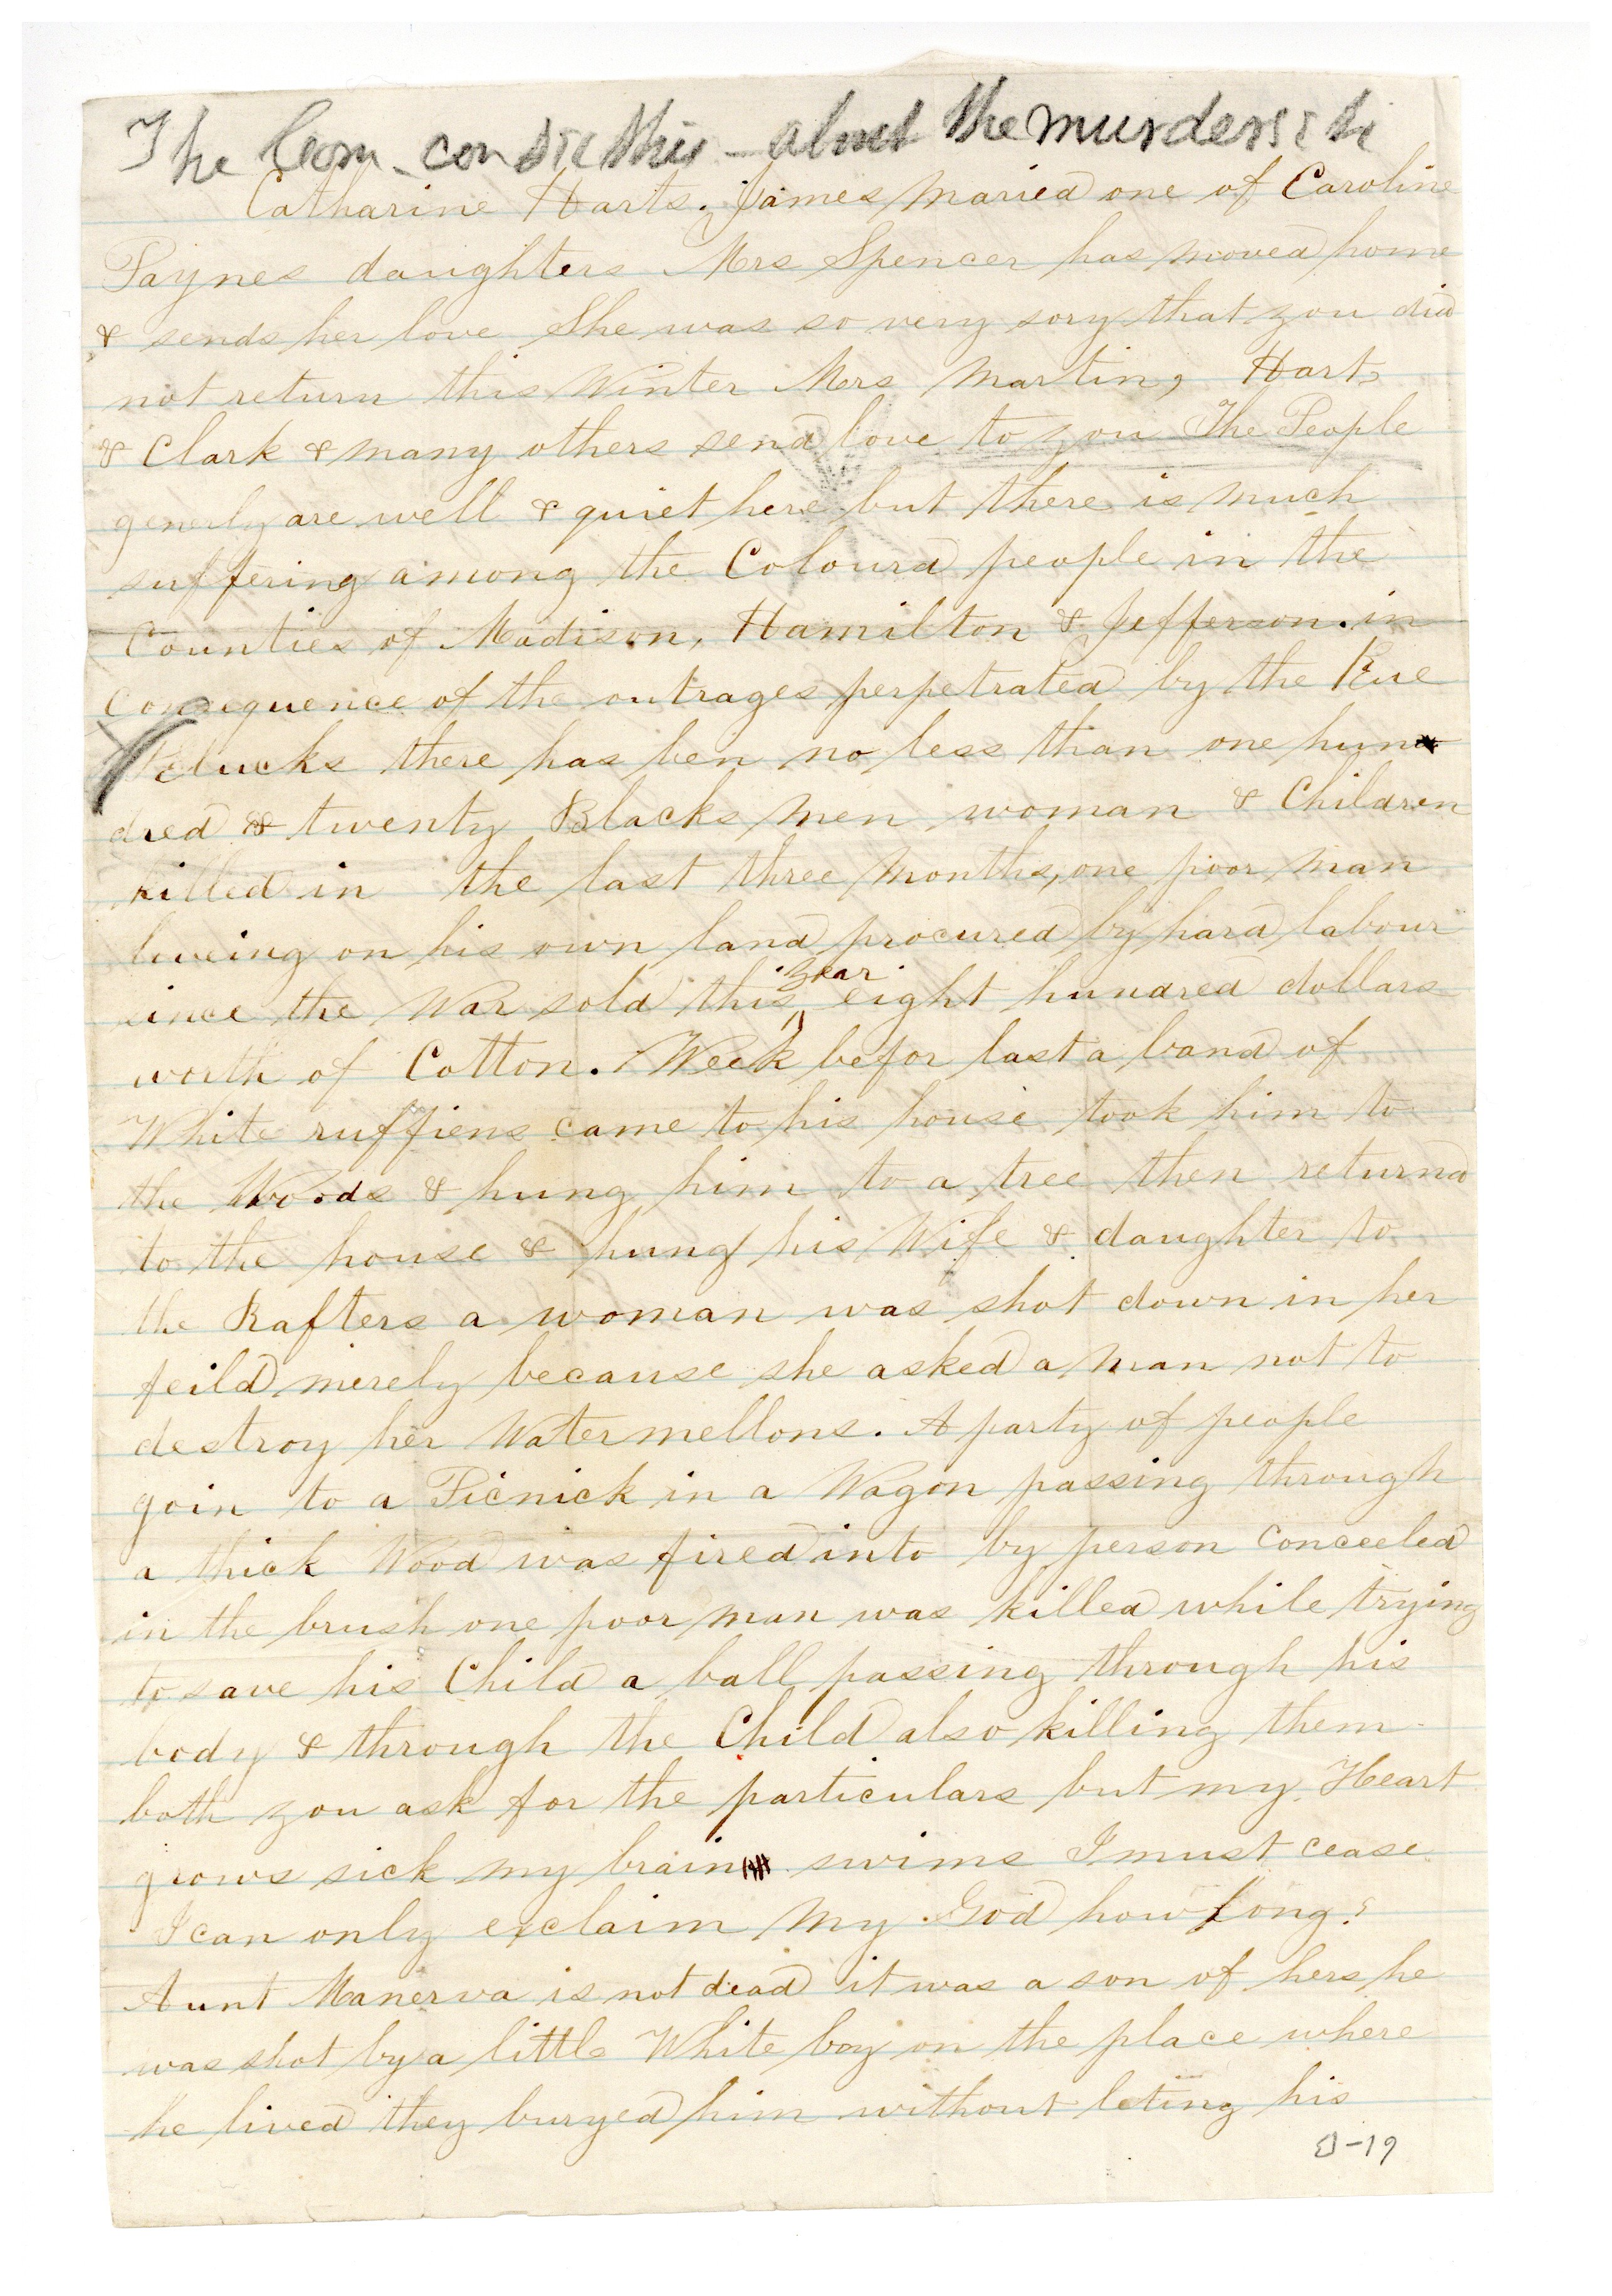 The Com. con this - about the murders
Catharine Harts. James maried one of Caroline
Paynes daughters Mrs Spencer has moved home
& sends her love She was so very sory that you did
not return this Winter Mrs Martin, Hart,
& Clark & many others send love to you The People
generly are well & quiet here but there is much
suffering among the Colourd people in the
Counties of Madison, Hamilton & Jefferson. in
Consequence of the outrages perpetrated by the Kue
Klucks there has ben no less than one hun
dred & twenty Blacks men woman & Children
killed in the last three months, one poor man
liveing on his own land procured by hard labour
since the War sold this year eight hundred dollars
worth of Cotton. Week befor last a band of
White ruffiens came to his house took him to
the Woods & hung him to a tree then returnd
to the house & hung his Wife & daughter to
the Rafters a woman was shot down in her
feild merely because she asked a man not to
destroy her Watermellons. A party of people
goin to a Picnick in a Wagon passing through
a thick Wood was fired into by person conceeled
in the brush one poor man was killed while trying
to save his Child a ball passing through his
body & through the Child also killing them
both you ask for the particulars but my Heart
grows sick my brain swims I must cease
I can only exclaim My God how long?
Aunt Manerva is not dead it was a son of hers he
was shot by a little White boy on the place where
he lived they buryed him without leting his
-19